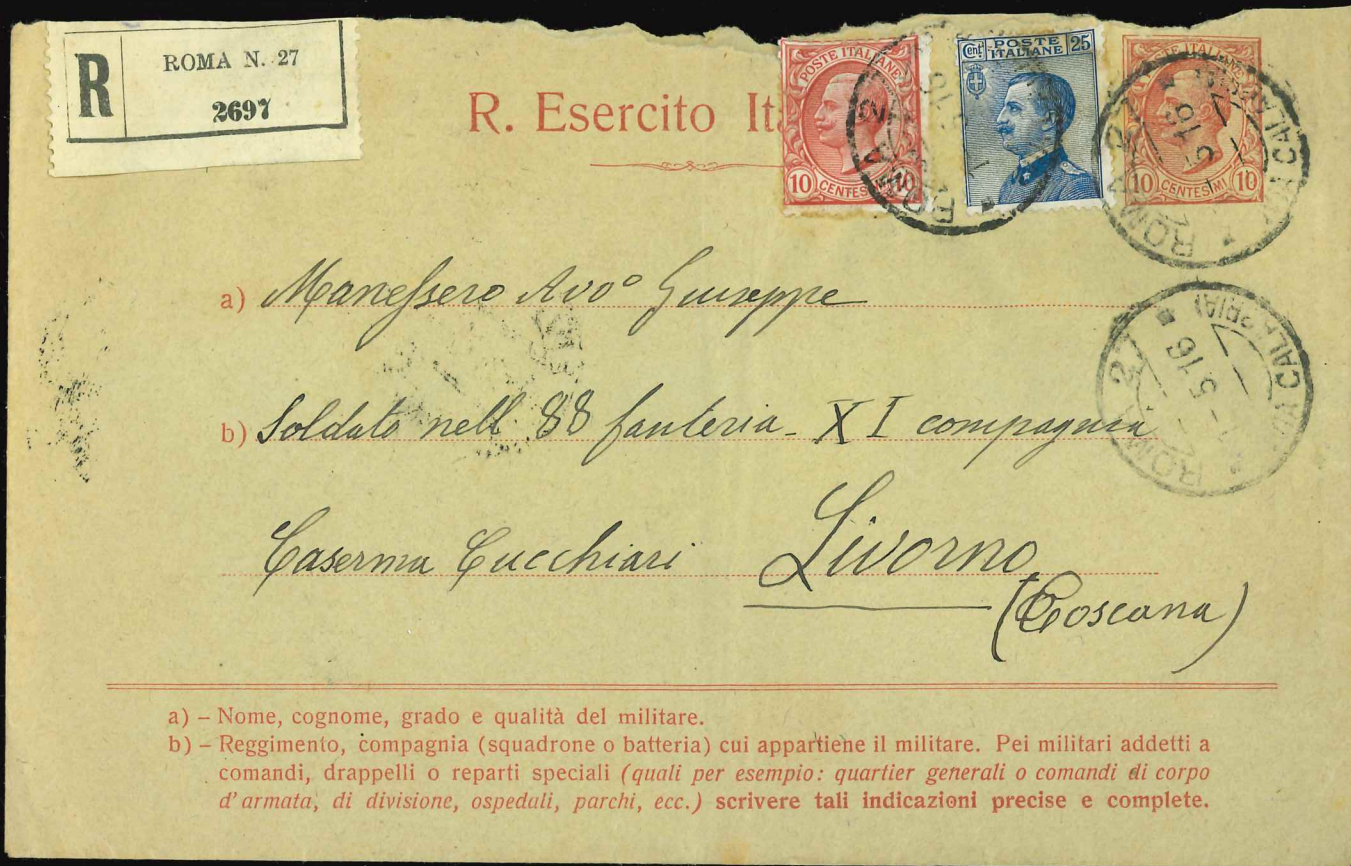 R
ROMA N. 27
2697
R. Esercito It
POSTE ITALIANE
10 CENTESIMI
Cent. POSTE ITALIANE 25
POSTE ITALIANE
10 CENTESIMI 10
ROMA 27
5 16
ROMA 27
1-5-16
a) Manessero Avv° Giuseppe
b) Soldato nell' 88 fanteria - XI compagnia
Caserma Cucchiari Livorno
(Toscana)
a) – Nome, cognome, grado e qualità del militare.
b) – Reggimento, compagnia (squadrone o batteria) cui appartiene il militare. Pei militari addetti a
comandi, drappelli o reparti speciali (quali per esempio: quartier generali o comandi di corpo
d'armata, di divisione, ospedali, parchi, ecc.) scrivere tali indicazioni precise e complete.